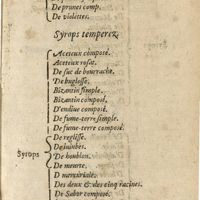 De prunes comp.
De violettes.
Syrops temperez.
Aceteux composé.
Aceteux rosat.
De suc de bourrache.
De buglosse.
Bizantin simple.
Bizantin composé.
D'endiue composé.
De fume-terre simple.
De fume-terre composé.
De reglisse.
De iuiubes.
Syrops
De houblon.
De meurte.
Des deux & des cinq racines.
De Sabor composé.